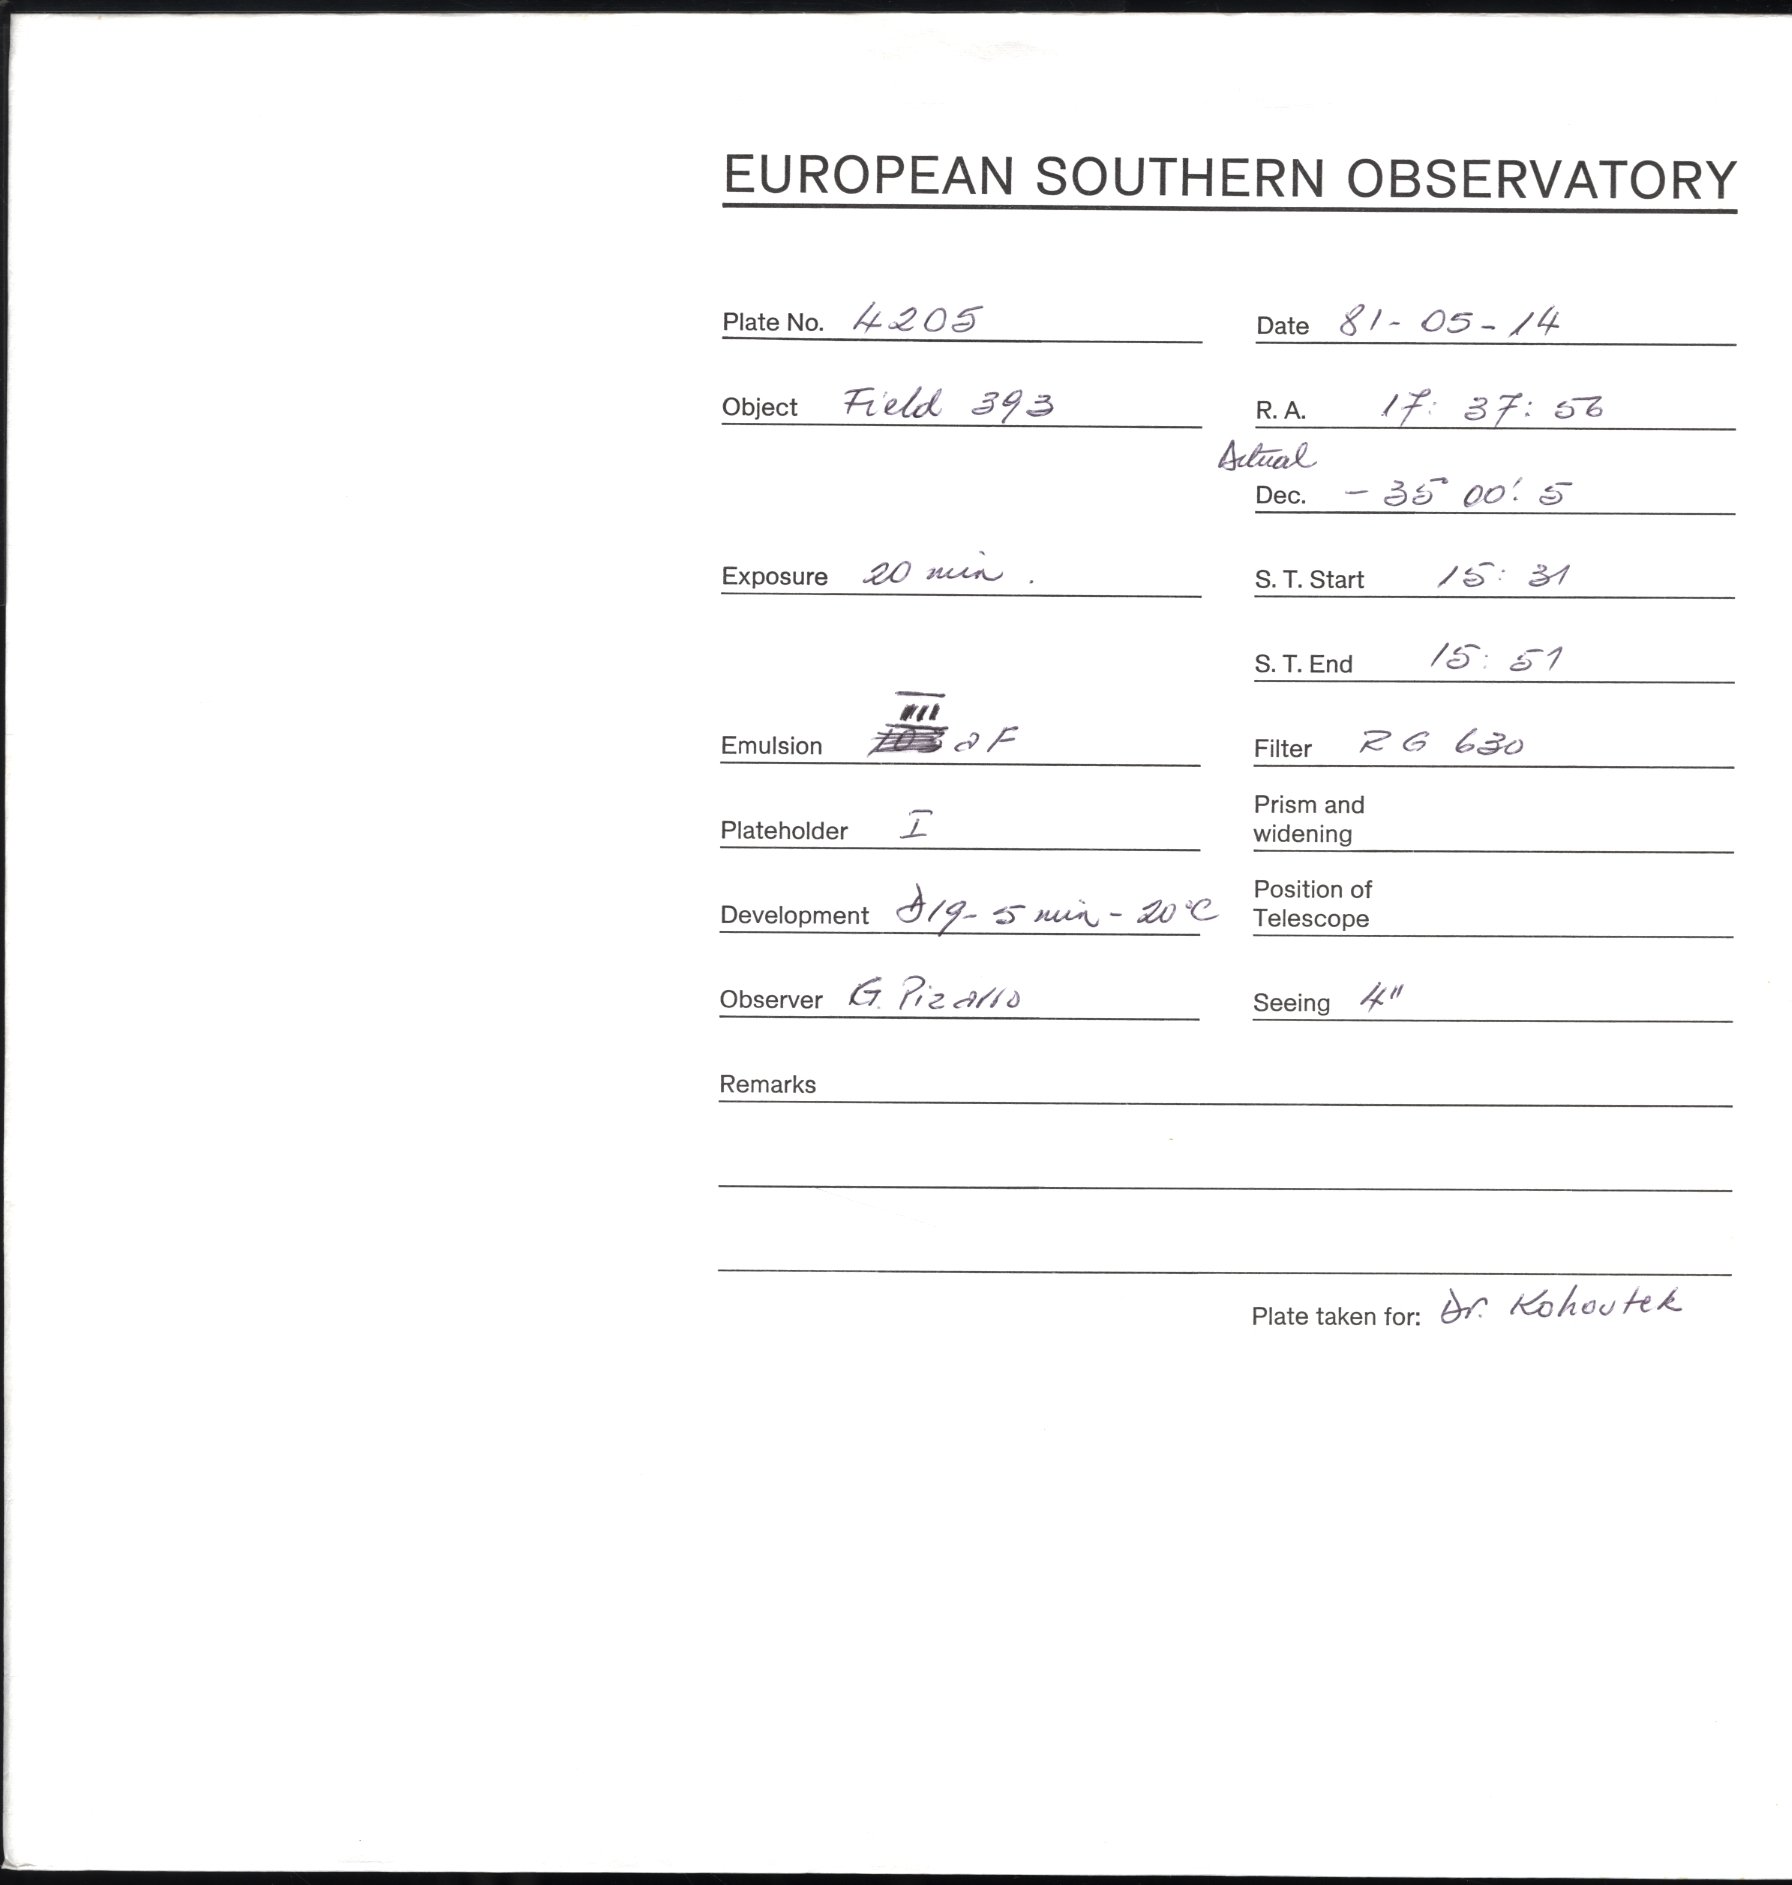 EUROPEAN SOUTHERN OBSERVATORY
Plate No. 4205 Date 81-05-14
Object Field 393 R. A. 17: 37: 56
Actual
Dec. - 35° 00'. 5
Exposure 20 min. S. T. Start 15: 31
S. T. End 15: 51
III
Emulsion 103 a F Filter RG 630
Plateholder I Prism and widening
Development D19- 5 min - 20°C Position of Telescope
Observer G. Pizarro Seeing 4"
Remarks
Plate taken for: Dr. Kohoutek